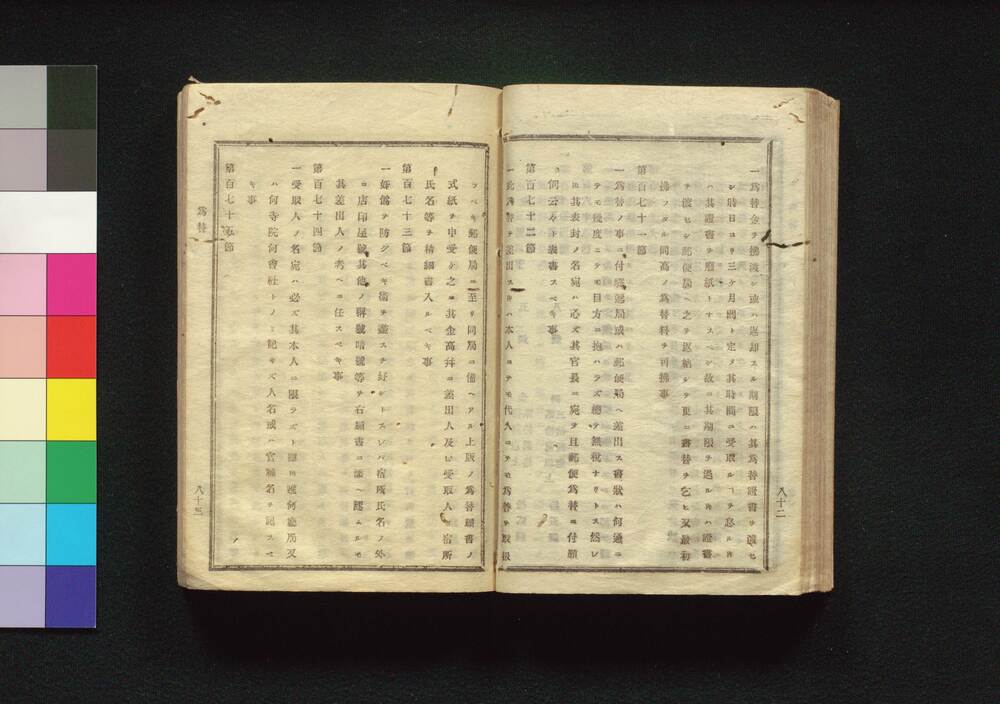 一爲替金ヲ拂渡シ或ハ返却スル期限ハ其爲替證書ヲ渡セ
シ時日ヨリ三ケ月間ト定メ其時間ニ受取ルヿヲ怠ル片
ハ其證書ヲ廢紙トナスベシ故ニ其期限ヲ過ル片ハ證書
ヲ渡セシ郵便局ヘ之ヲ返納シテ更ニ書替ヲ乞ヒ又最初
拂フタル同高ノ爲替料ヲ可拂事
第百七十一節
一爲替ノ事ニ付驛遞局或ハ郵便局ヘ差出ス書狀ハ何通ニ
テモ幾度ニテモ目方ニ拘ハラズ總テ無税ナリトス然レ
𪜈其表封ノ名宛ハ必ズ其官長ニ宛テ且郵便爲替ニ付願
伺云々ト表書スベキ事
第百七十二節
一此爲替ヲ差出スニハ本人ニテモ代人ニテモ爲替ヲ取扱
フベキ郵便局ニ至リ同局ニ備ヘアル上版ノ爲替願書ノ
式紙ヲ申受ケ之ニ其金高幷ニ差出人及ビ受取人ノ宿所
氏名等ヲ精細書入ルベキ事
第百七十三節
一奸僞ヲ防グベキ術ヲ盡スヲ好シトスレバ宿所氏名ノ外
ニ店印屋號其他ノ稱號暗號等ヲ右願書ニ添ヘ認ムルモ
其差出人ノ考ヘニ任スベキ事
第百七十四節
一受取人ノ名宛ハ必ズ其本人ニ限ラズト雖𪜈或何廳局又
ハ何寺院何會社トノミ記サズ人名或ハ官職名ヲ記スベ
キ事
第百七十五節
八十二
爲替
八十三